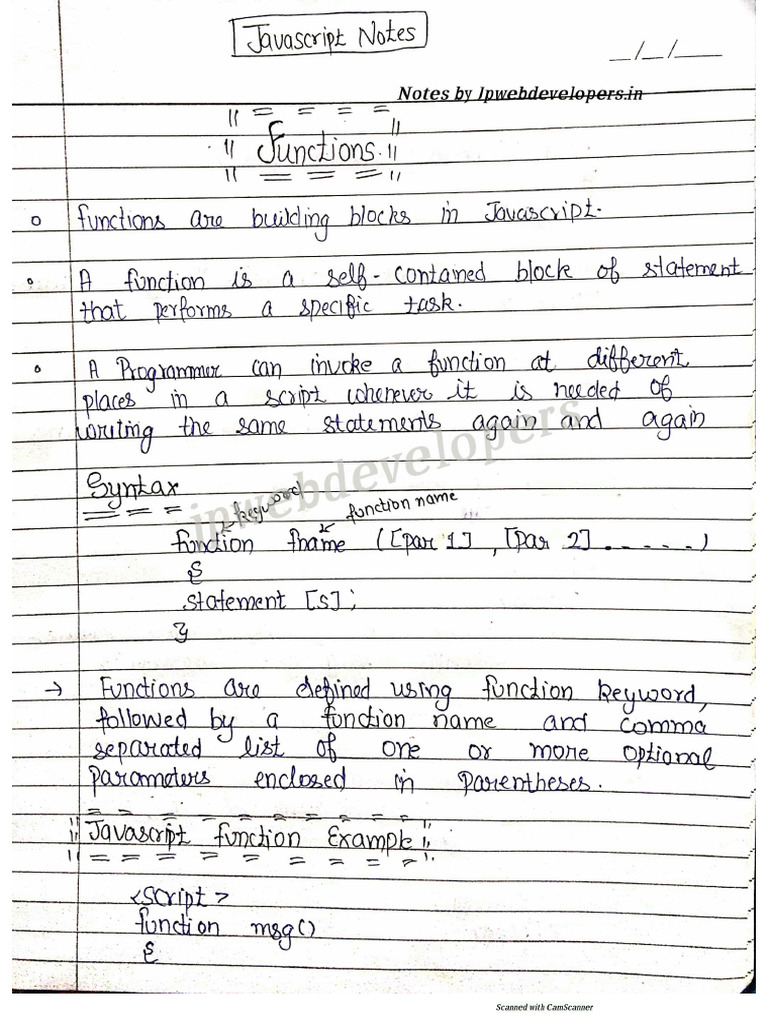 Javascript Notes
__/__/____
Notes by Jpwebdevelopers.in
Functions.
Functions are building blocks in Javascript.
A function is a self-contained block of statement
that performs a specific task.
A Programmer can invoke a function at different
places in a script whenever it is needed of
writing the same statements again and again
jpwebdevelopers
Syntax
keyword function name
function fname ([par 1] , [par 2] ......)
{
statement [s];
}
→ Functions are defined using function keyword,
followed by a function name and comma
separated list of one or more optional
parameters enclosed in parentheses.
Javascript function Example
<script>
function msg()
{
Scanned with CamScanner